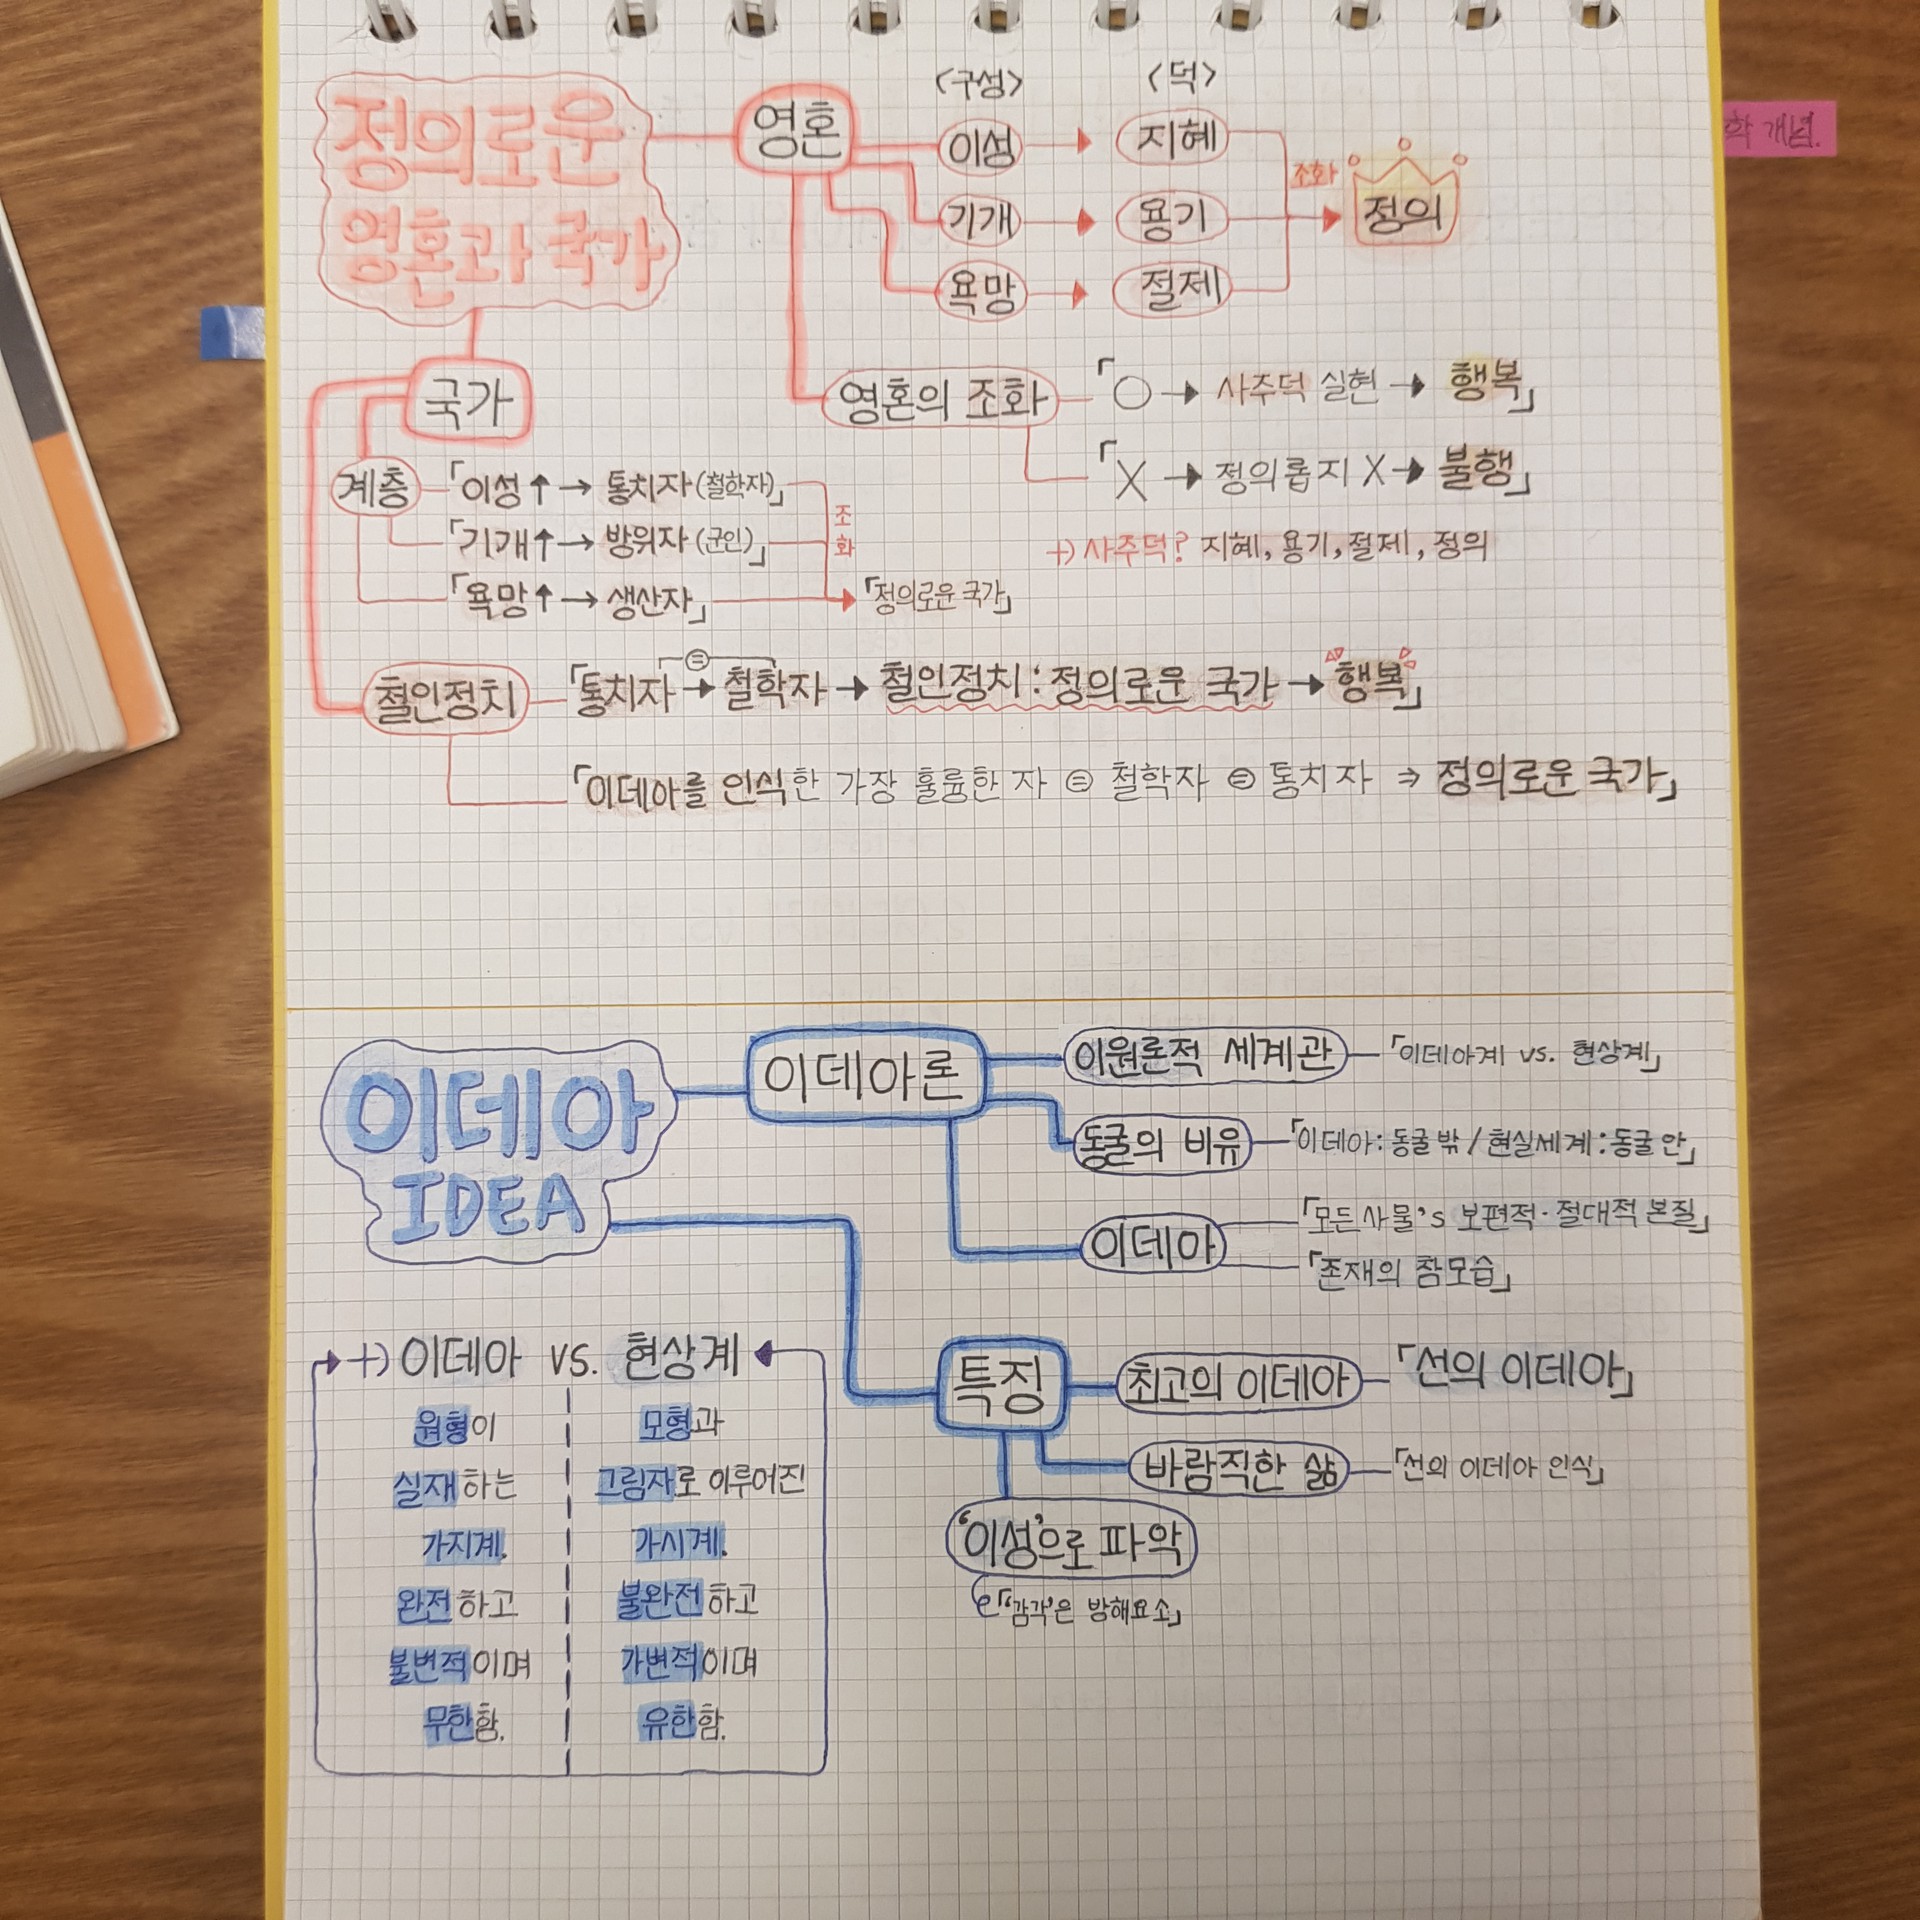 정의로운
영혼과 국가
영혼
<구성> <덕>
이성 → 지혜
기개 → 용기
욕망 → 절제
조화
정의
영혼의 조화
「○ → 사주덕 실현 → 행복」
「X → 정의롭지 X → 불행」
+) 사주덕? 지혜, 용기, 절제, 정의
국가
계층
「이성↑ → 통치자(철학자)」
「기개↑ → 방위자(군인)」
「욕망↑ → 생산자」
조화
「정의로운 국가」
철인정치
「통치자 → 철학자 → 철인정치 : 정의로운 국가 → 행복」
=
「이데아를 인식한 가장 훌륭한 자 ⊜ 철학자 ⊜ 통치자 ⇒ 정의로운 국가」
개념.
이데아
IDEA
이데아론
이원론적 세계관 「이데아계 vs. 현상계」
동굴의 비유 「이데아 : 동굴 밖 / 현실세계 : 동굴 안」
이데아
「모든 사물's 보편적·절대적 본질」
「존재의 참모습」
특징
최고의 이데아 「선의 이데아」
바람직한 삶 「선의 이데아 인식」
'이성'으로 파악
「'감각'은 방해요소」
+) 이데아 vs. 현상계
원형이 모형과
실재하는 그림자로 이루어진
가지계. 가시계.
완전하고 불완전하고
불변적이며 가변적이며
무한함. 유한함.